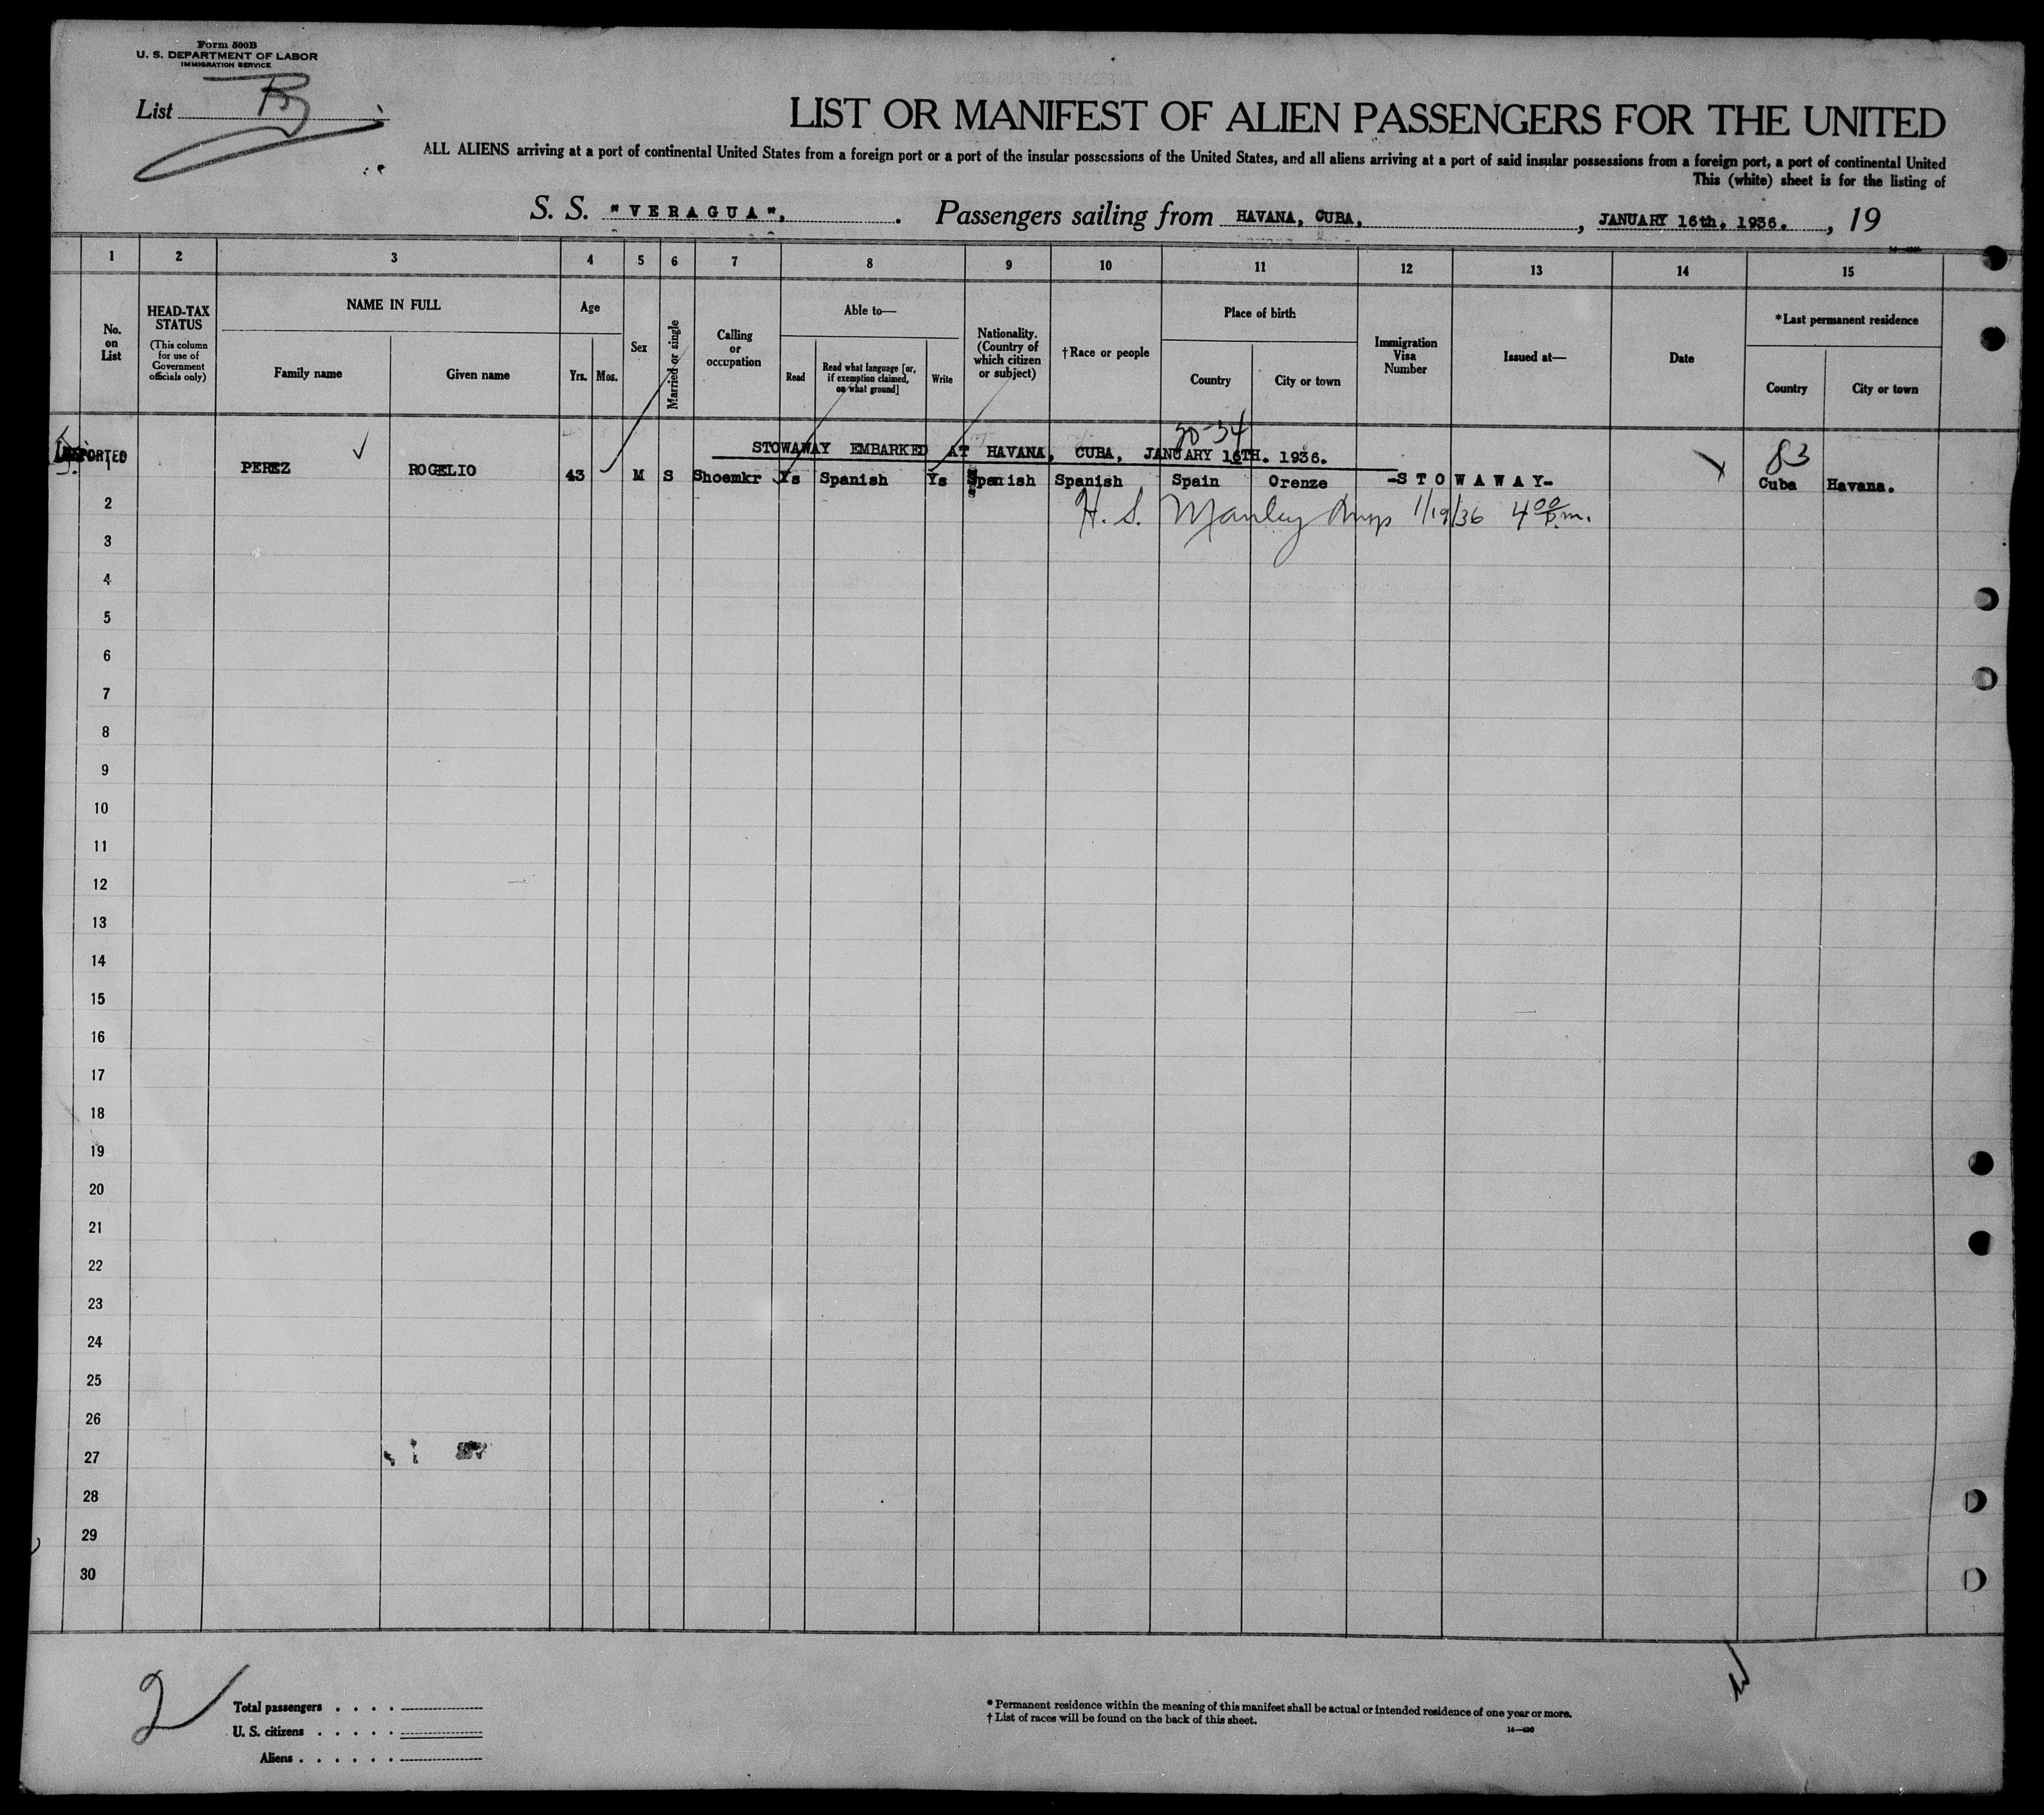 Form 500B
U. S. DEPARTMENT OF LABOR
IMMIGRATION SERVICE
List
LIST OR MANIFEST OF ALIEN PASSENGERS FOR THE UNITED
ALL ALIENS arriving at a port of continental United States from a foreign port or a port of the insular possessions of the United States, and all aliens arriving at a port of said insular possessions from a foreign port, a port of continental United
This (white) sheet is for the listing of
S. S. "VERAGUA", . Passengers sailing from HAVANA, CUBA, , JANUARY 16th. 1936. , 19
1 2 3 4 5 6 7 8 9 10 11 12 13 14 15
No. on List
HEAD-TAX STATUS
(This column for use of Government officials only)
NAME IN FULL
Family name
Given name
Age
Yrs. Mos.
Sex
Married or single
Calling or occupation
Able to—
Read
Read what language [or, if exemption claimed, on what ground]
Write
Nationality. (Country of which citizen or subject)
† Race or people
Place of birth
Country
City or town
Immigration Visa Number
Issued at—
Date
* Last permanent residence
Country
City or town
30-34
STOWAWAY EMBARKED AT HAVANA, CUBA, JANUARY 16TH. 1936.
83
1 PEREZ ROGELIO 43 M S Shoemkr Ys Spanish Ys Spanish Spanish Spain Orenze -STOWAWAY- Cuba Havana.
H. S. Manley 1/19/36 4 00 p.m.
2
3
4
5
6
7
8
9
10
11
12
13
14
15
16
17
18
19
20
21
22
23
24
25
26
27
28
29
30
2
Total passengers . . . .
U. S. citizens . . . . .
Aliens . . . . . .
* Permanent residence within the meaning of this manifest shall be actual or intended residence of one year or more.
† List of races will be found on the back of this sheet.